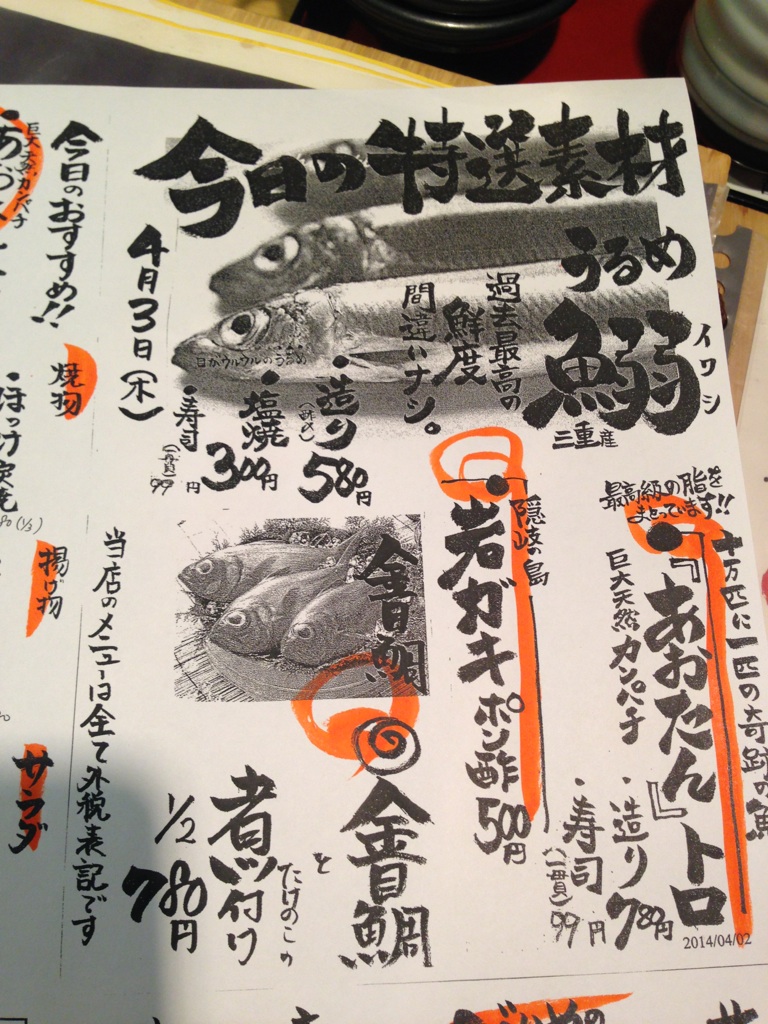 今日の特選素材
うるめ
鰯
イワシ
三重産
過去最高の
鮮度
間違いナシ。
目がウルウルのうるめ
・造り
(酢〆)
580円
・塩焼
300円
・寿司
(一貫)
99円
4月3日(木)
最高級の脂を
まとっています!!
十万匹に一匹の奇跡の魚
・『あおたん』トロ
巨大天然カンパチ
・造り
780円
・寿司
(一貫)
99円
2014/04/02
隠岐の島
・岩ガキポン酢
500円
金目鯛
金目鯛
と
たけのこの
煮付け
1/2
780円
当店のメニューは全て外税表記です
今日のおすすめ!!
巨大天然カンパチ
焼物
・ほっけ炭焼
揚げ物
サラダ